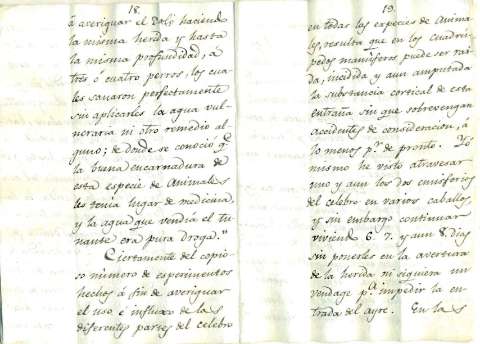 18.
á averiguar el Valr haciendo
la misma herida y hasta
la misma profundidad, á
tres ó cuatro perros, los cua-
les sanaron perfectamente
sin aplicarles la agua vul-
neraria ni otro remedio al-
guno; de donde se conoció qe
la buena encarnadura de
esta especie de Animales
les tenia lugar de medicina,
y la agua que vendia el tu-
nante era pura droga."
Ciertamente del copio-
so número de esperimentos
hechos á fin de averiguar
el uso é influxo de las
diferentes partes del celebro
19.
en todas las especies de Anima-
les, resulta que en los cuadrú-
pedos mamíferos puede ser rai-
da, incidida y aun amputada
la substancia cortical de esta
entraña sin que sobrevengan
accidentes de consideracion, á
lo menos pr. de pronto. Yo
mismo he visto atravesar
uno y aun los dos emisferios
del celebro en varios caballos,
y sin embargo continuar
viviendo 6. 7. y aun 8. dias
sin ponerles en la avertura
de la herida ni siquiera un
vendage pa. impedir la en-
trada del ayre. En las